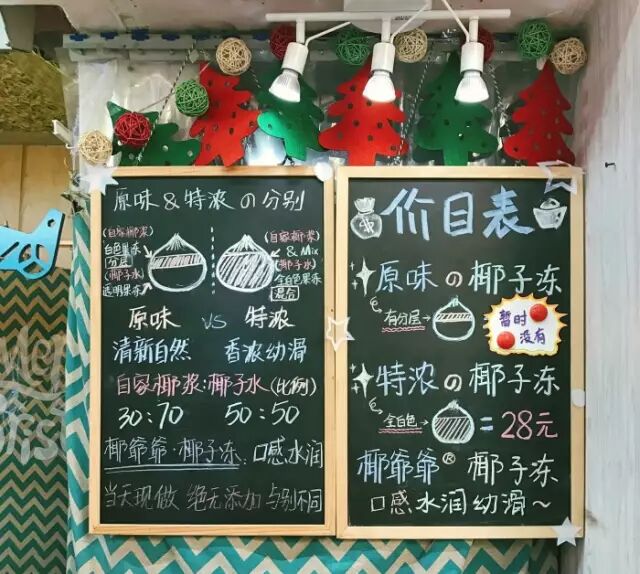 原味&特浓の分别
(自家椰浆)
白色果冻
分层
(椰子水)
透明果冻
(自家椰浆)
& Mix
(椰子水)
全白色果冻
混合
原味 VS 特浓
清新自然 香浓幼滑
自家椰浆:椰子水(比例)
30:70 50:50
椰爷爷·椰子冻:口感水润
当天现做 绝无添加 与别不同
$
价目表
原味の椰子冻
有分层
暂时
没有
特浓の椰子冻
全白色
=28元
椰爷爷® 椰子冻
口感水润幼滑~